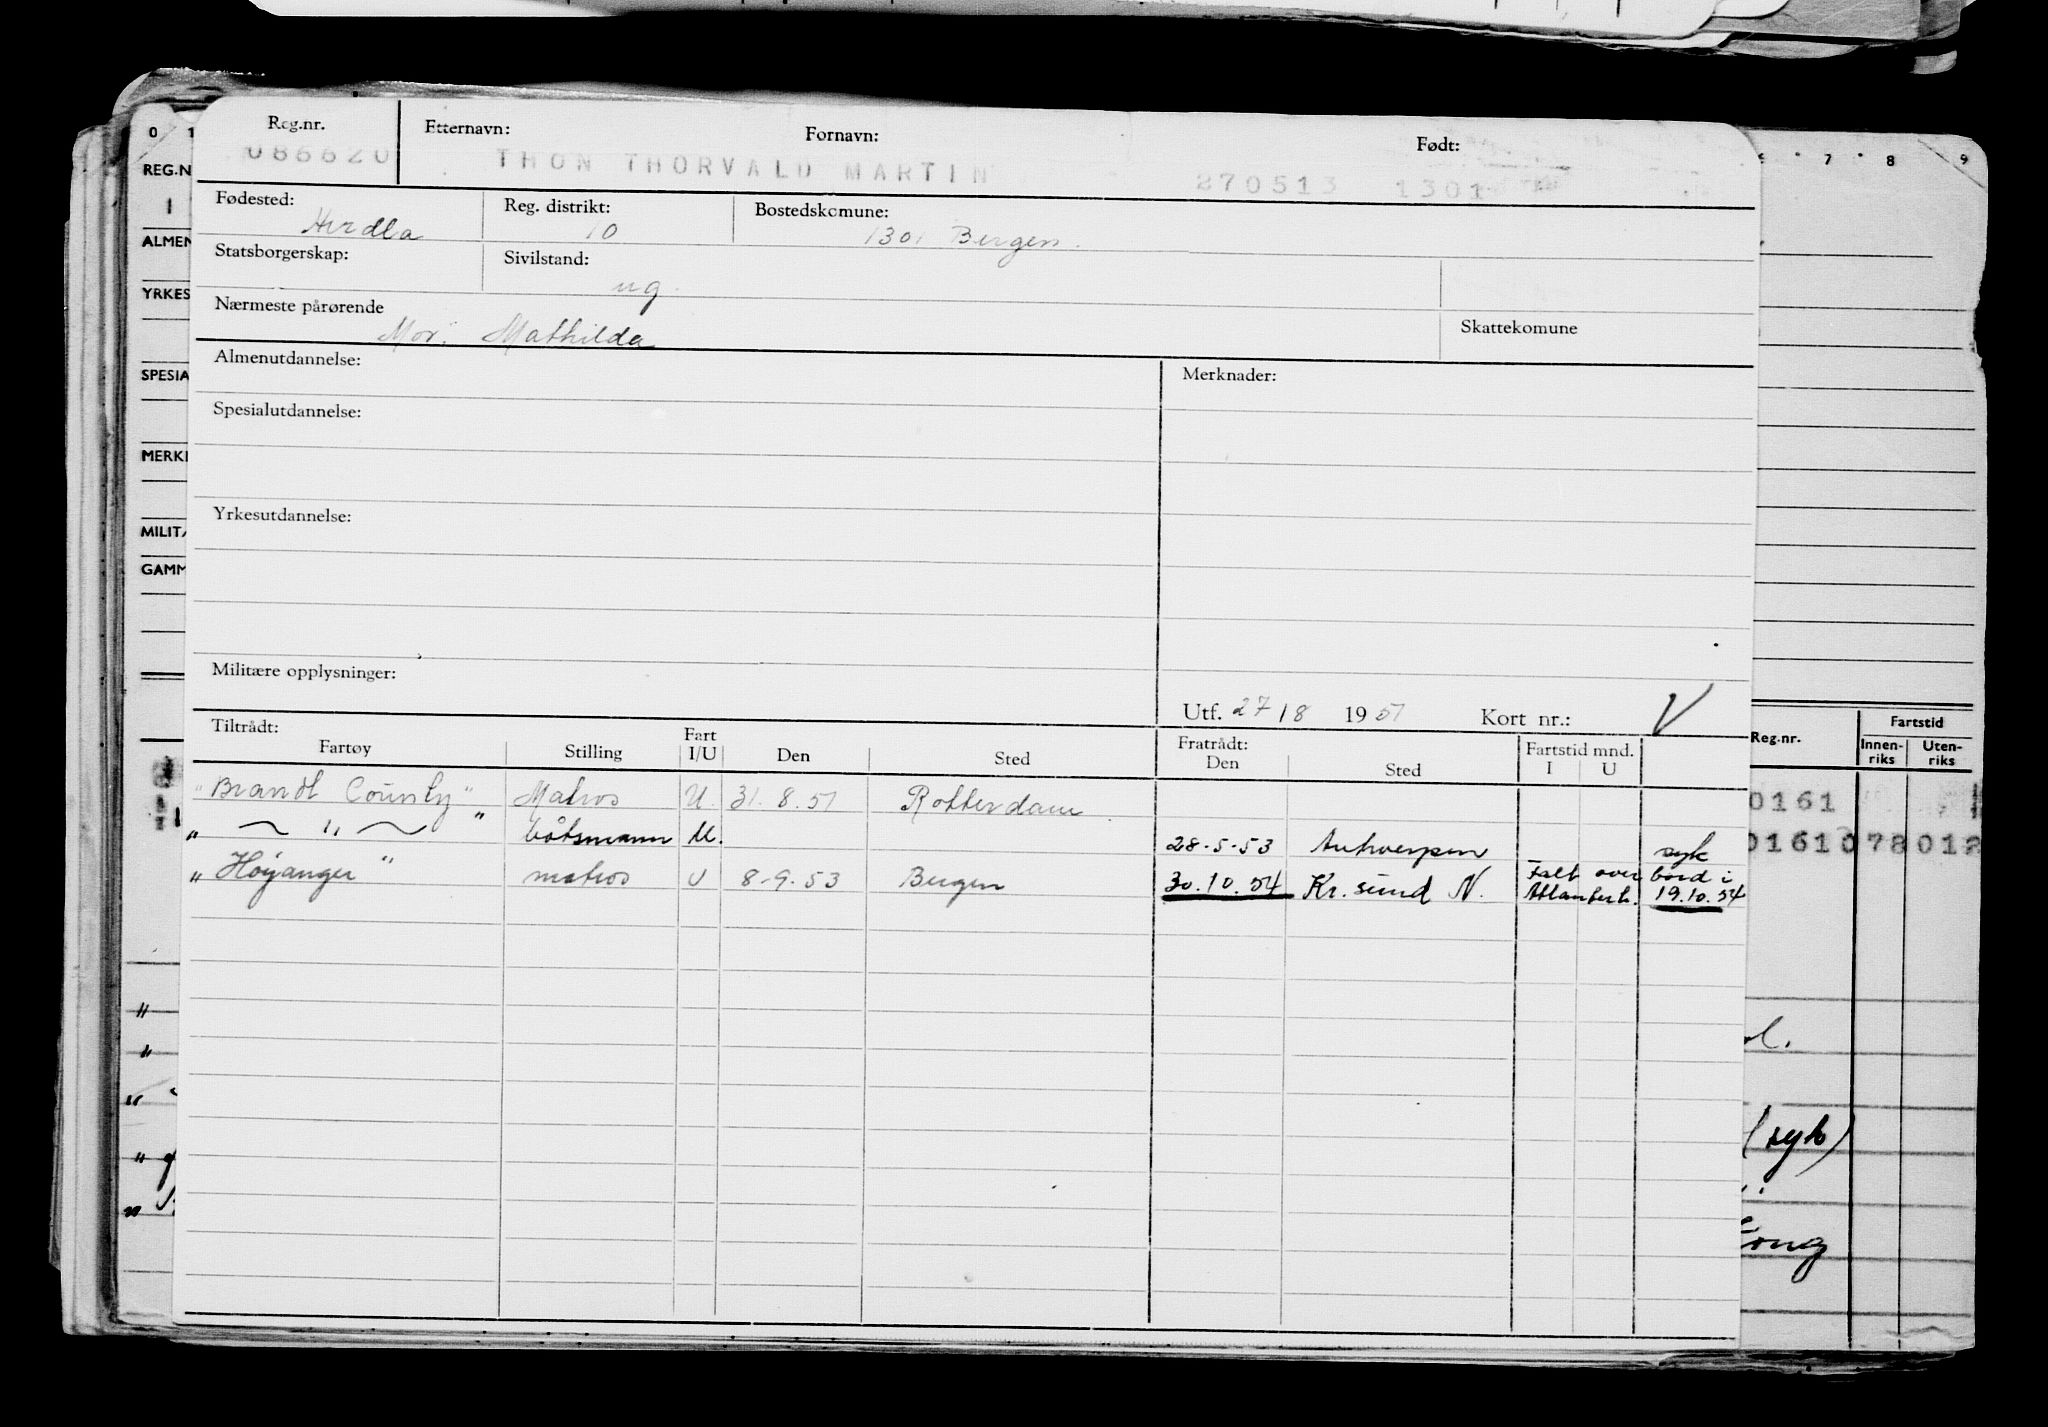 0 1
REG.N
1
ALMEN
YRKES
SPESIA
MERKN
MILITÆ
GAMM
Reg.nr. Etternavn: Fornavn: Født:
086620 THON THORVALD MARTIN 270513 1301
Fødested: Herdla Reg. distrikt: 10 Bostedskomune: 1301 Bergen.
Statsborgerskap: Sivilstand: ug.
Nærmeste pårørende Mor: Mathilda Skattekomune
Almenutdannelse: Merknader:
Spesialutdannelse:
Yrkesutdannelse:
Militære opplysninger:
Utf. 27/8 1951 Kort nr.: V
Tiltrådt: Fratrådt: Fartstid mnd.
Fartøy Stilling Fart I/U Den Sted Den Sted I U
"Brandt County" Matros U. 31.8.51 Rotterdam
" — " — " båtsmann U. 28-5-53 Antwerpen syk
"Høyanger" matros U 8-9.53 Bergen 30.10.54 Kr.sund N. Falt over bord i
Atlanterh. 19.10.54
7 8 9
Reg.nr. Fartstid
Innen-riks Uten-riks
0161
0161078012
(syk)